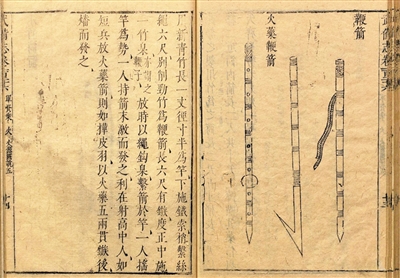 武備志卷
鞭箭
火藥鞭箭
用新青竹長一丈徑寸半爲竿下施鐵索梢繫絲
繩六尺別削勁竹爲鞭箭長六尺有鏃度正中施
一竹臬亦謂之鞭子放時以繩鉤臬繫箭於竿一人搖
竿爲勢一人持箭末激而發之利在射高中人如
短兵放火藥箭則如樺皮羽以火藥五兩貫鏃後
燔而發之
武備志卷
軍資乘 火 火器圖說五
十四